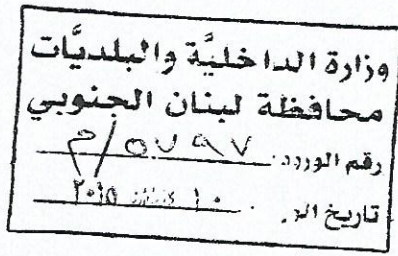 وزارة الداخليَّة والبلديَّات
محافظة لبنان الجنوبي
رقم الورود: ٥٧٩٧/م
تاريخ ١٠ ٢٠١٥